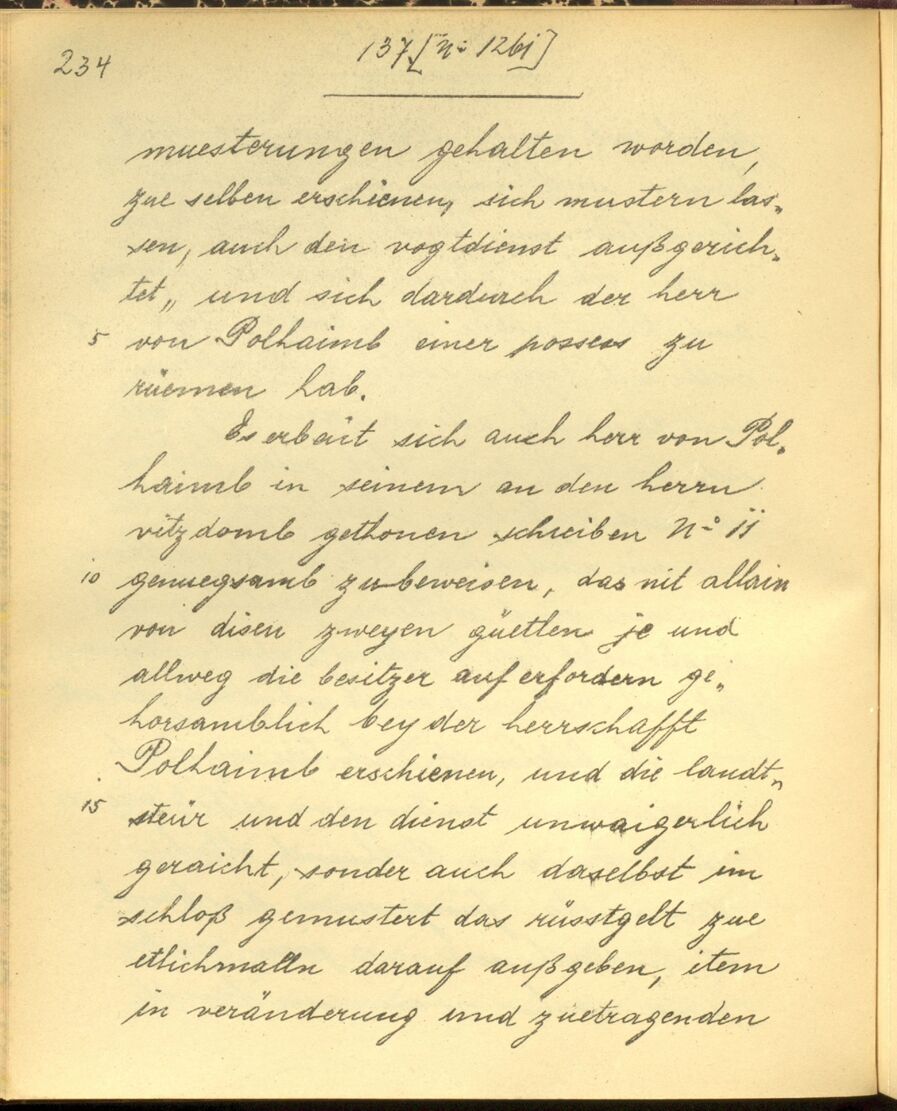 234
137 [No 126i]
muesterungen gehalten worden,
zue selben erschienen, sich mustern las„
sen, auch den vogtdienst außgerich„
tet„ und sich dardurch der herr
5 von Polhaimb einer possess zu
rüemen hab.
Es erbeüt sich auch herr von Pol„
haimb in seinem an den herrn
vitzdomb gethonen schreiben No 11
10 genuegsamb zu beweisen, das nit allain
von disen zweyen güetlen je und
allweg die besitzer auf erfordern ge„
horsamblich bey der herrschafft
Polhaimb erschienen, und die landt„
15 steür und den dienst unwaigerlich
geraicht, sonder auch daselbst im
schloß gemustert das rüsstgelt zue
etlichmalln darauf außgeben, item
in veränderung und zuetragenden